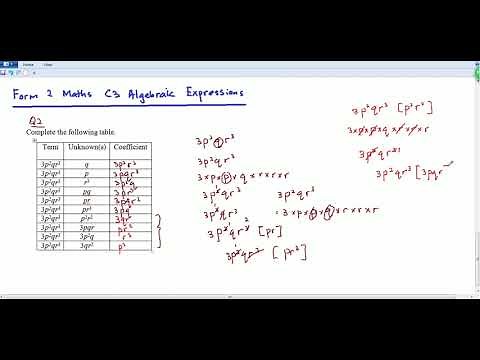 Form 2 Maths C3 Algebraic Expressions
Q2
Complete the following table.
Term Unknown(s) Coefficient
3p²qr³ q 3p²r³
3p²qr³ p 3pqr³
3p²qr³ r³ 3p²q
3p²qr³ pq 3pr³
3p²qr³ pr 3pqr²
3p²qr³ pr³ 3pq
3p²qr³ p²r² 3qr
3p²qr³ 3pqr pr²
3p²qr³ 3p²q r³
3p²qr³ 3qr² p²
3p²qr³
3p²qr³
3×p×p×q×r×r×r
3p²qr³
3p²qr³ [pr]
3p²qr³ [pr³]
3p²qr³
=3×p×p×q×r×r×r
3p²qr³ [p²r²]
3×p×p×q×r×r×r
3p²qr³
3p²qr³ [3pqr